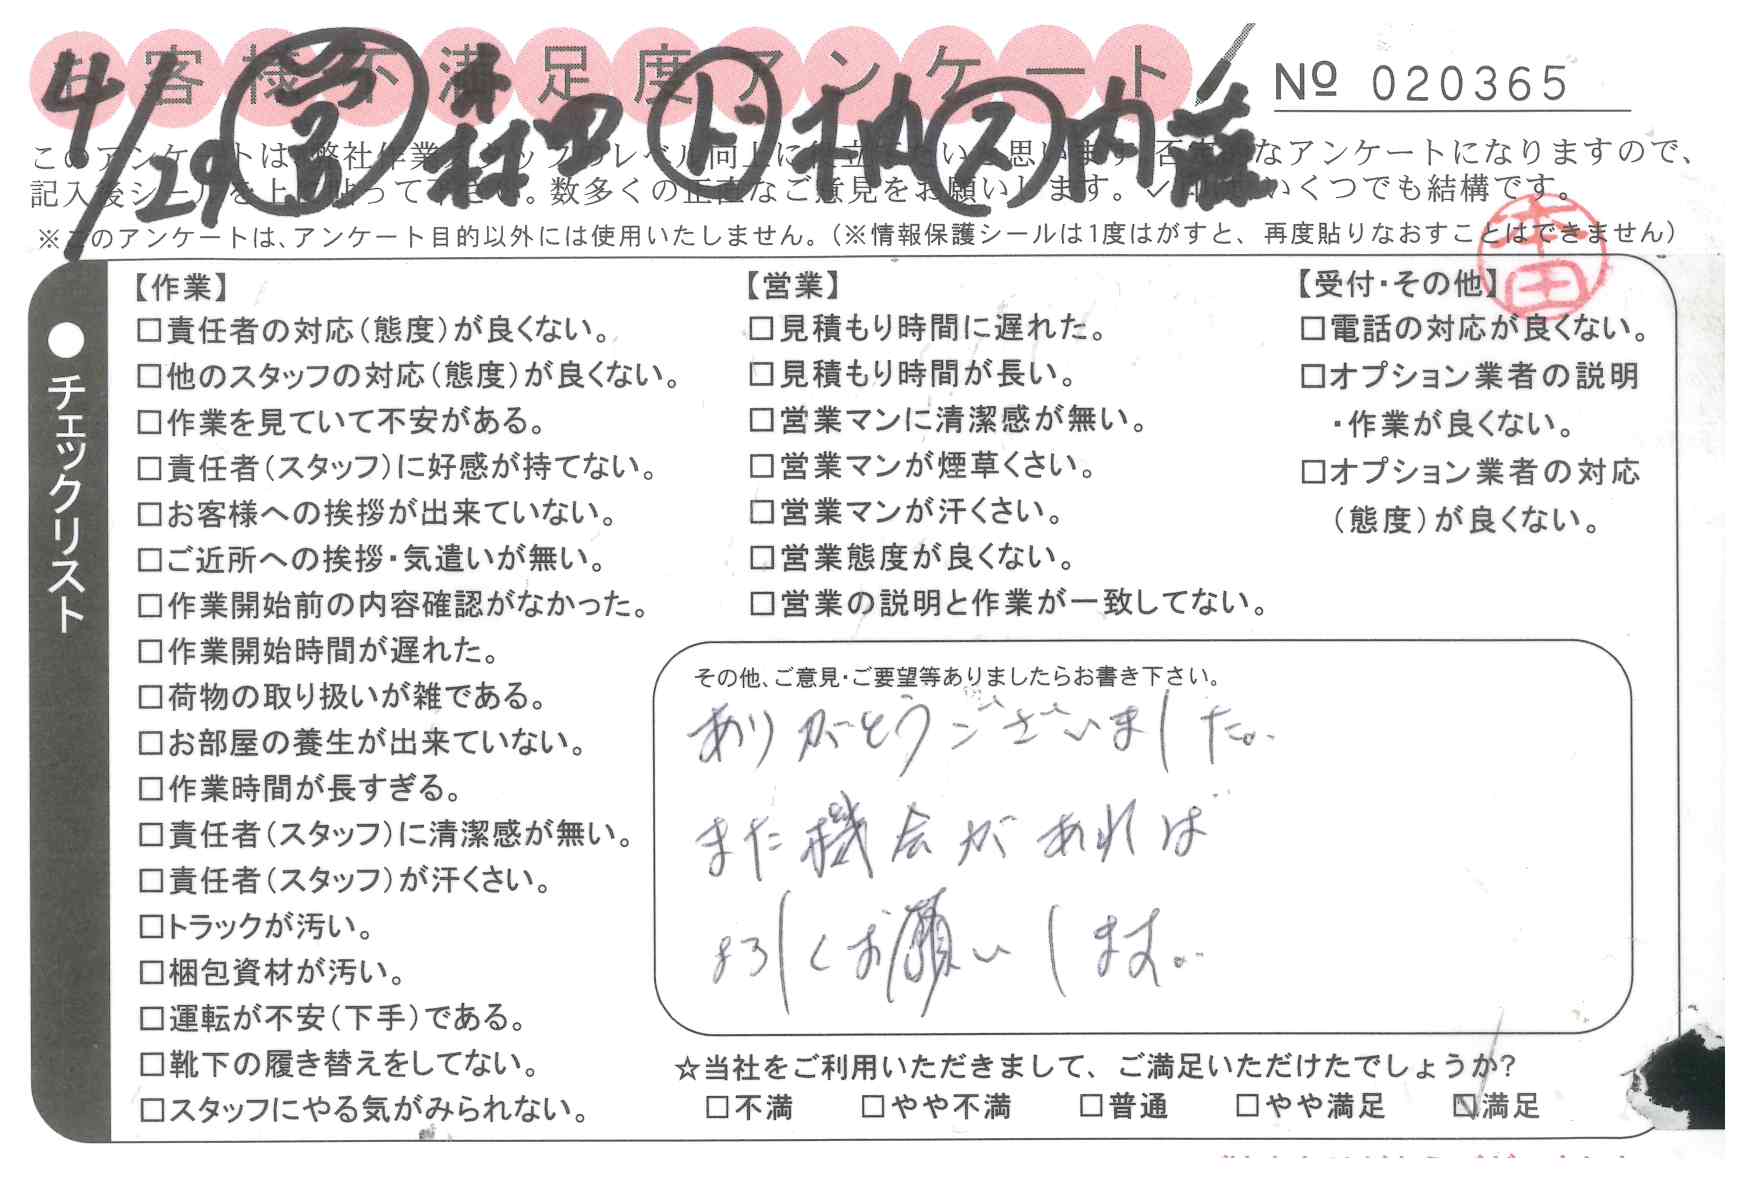 お客様不満足度アンケート
Nº 020365
4/29 営 井村田 ド 木内 ス 内藤
このアンケートは、弊社作業スタッフのレベル向上に役立てたいと思います。否定的なアンケートになりますので、
記入後シールを上に貼って下さい。数多くの正直なご意見をお願いします。✓印は、いくつでも結構です。
※このアンケートは、アンケート目的以外には使用いたしません。（※情報保護シールは1度はがすと、再度貼りなおすことはできません）
本田
●チェックリスト
【作業】
□責任者の対応（態度）が良くない。
□他のスタッフの対応（態度）が良くない。
□作業を見ていて不安がある。
□責任者（スタッフ）に好感が持てない。
□お客様への挨拶が出来ていない。
□ご近所への挨拶・気遣いが無い。
□作業開始前の内容確認がなかった。
□作業開始時間が遅れた。
□荷物の取り扱いが雑である。
□お部屋の養生が出来ていない。
□作業時間が長すぎる。
□責任者（スタッフ）に清潔感が無い。
□責任者（スタッフ）が汗くさい。
□トラックが汚い。
□梱包資材が汚い。
□運転が不安（下手）である。
□靴下の履き替えをしてない。
□スタッフにやる気がみられない。
【営業】
□見積もり時間に遅れた。
□見積もり時間が長い。
□営業マンに清潔感が無い。
□営業マンが煙草くさい。
□営業マンが汗くさい。
□営業態度が良くない。
□営業の説明と作業が一致してない。
【受付・その他】
□電話の対応が良くない。
□オプション業者の説明
・作業が良くない。
□オプション業者の対応
（態度）が良くない。
その他、ご意見・ご要望等ありましたらお書き下さい。
ありがとうございました。
また機会があれば
よろしくお願いします。
☆当社をご利用いただきまして、ご満足いただけたでしょうか?
□不満 □やや不満 □普通 □やや満足 ☑満足